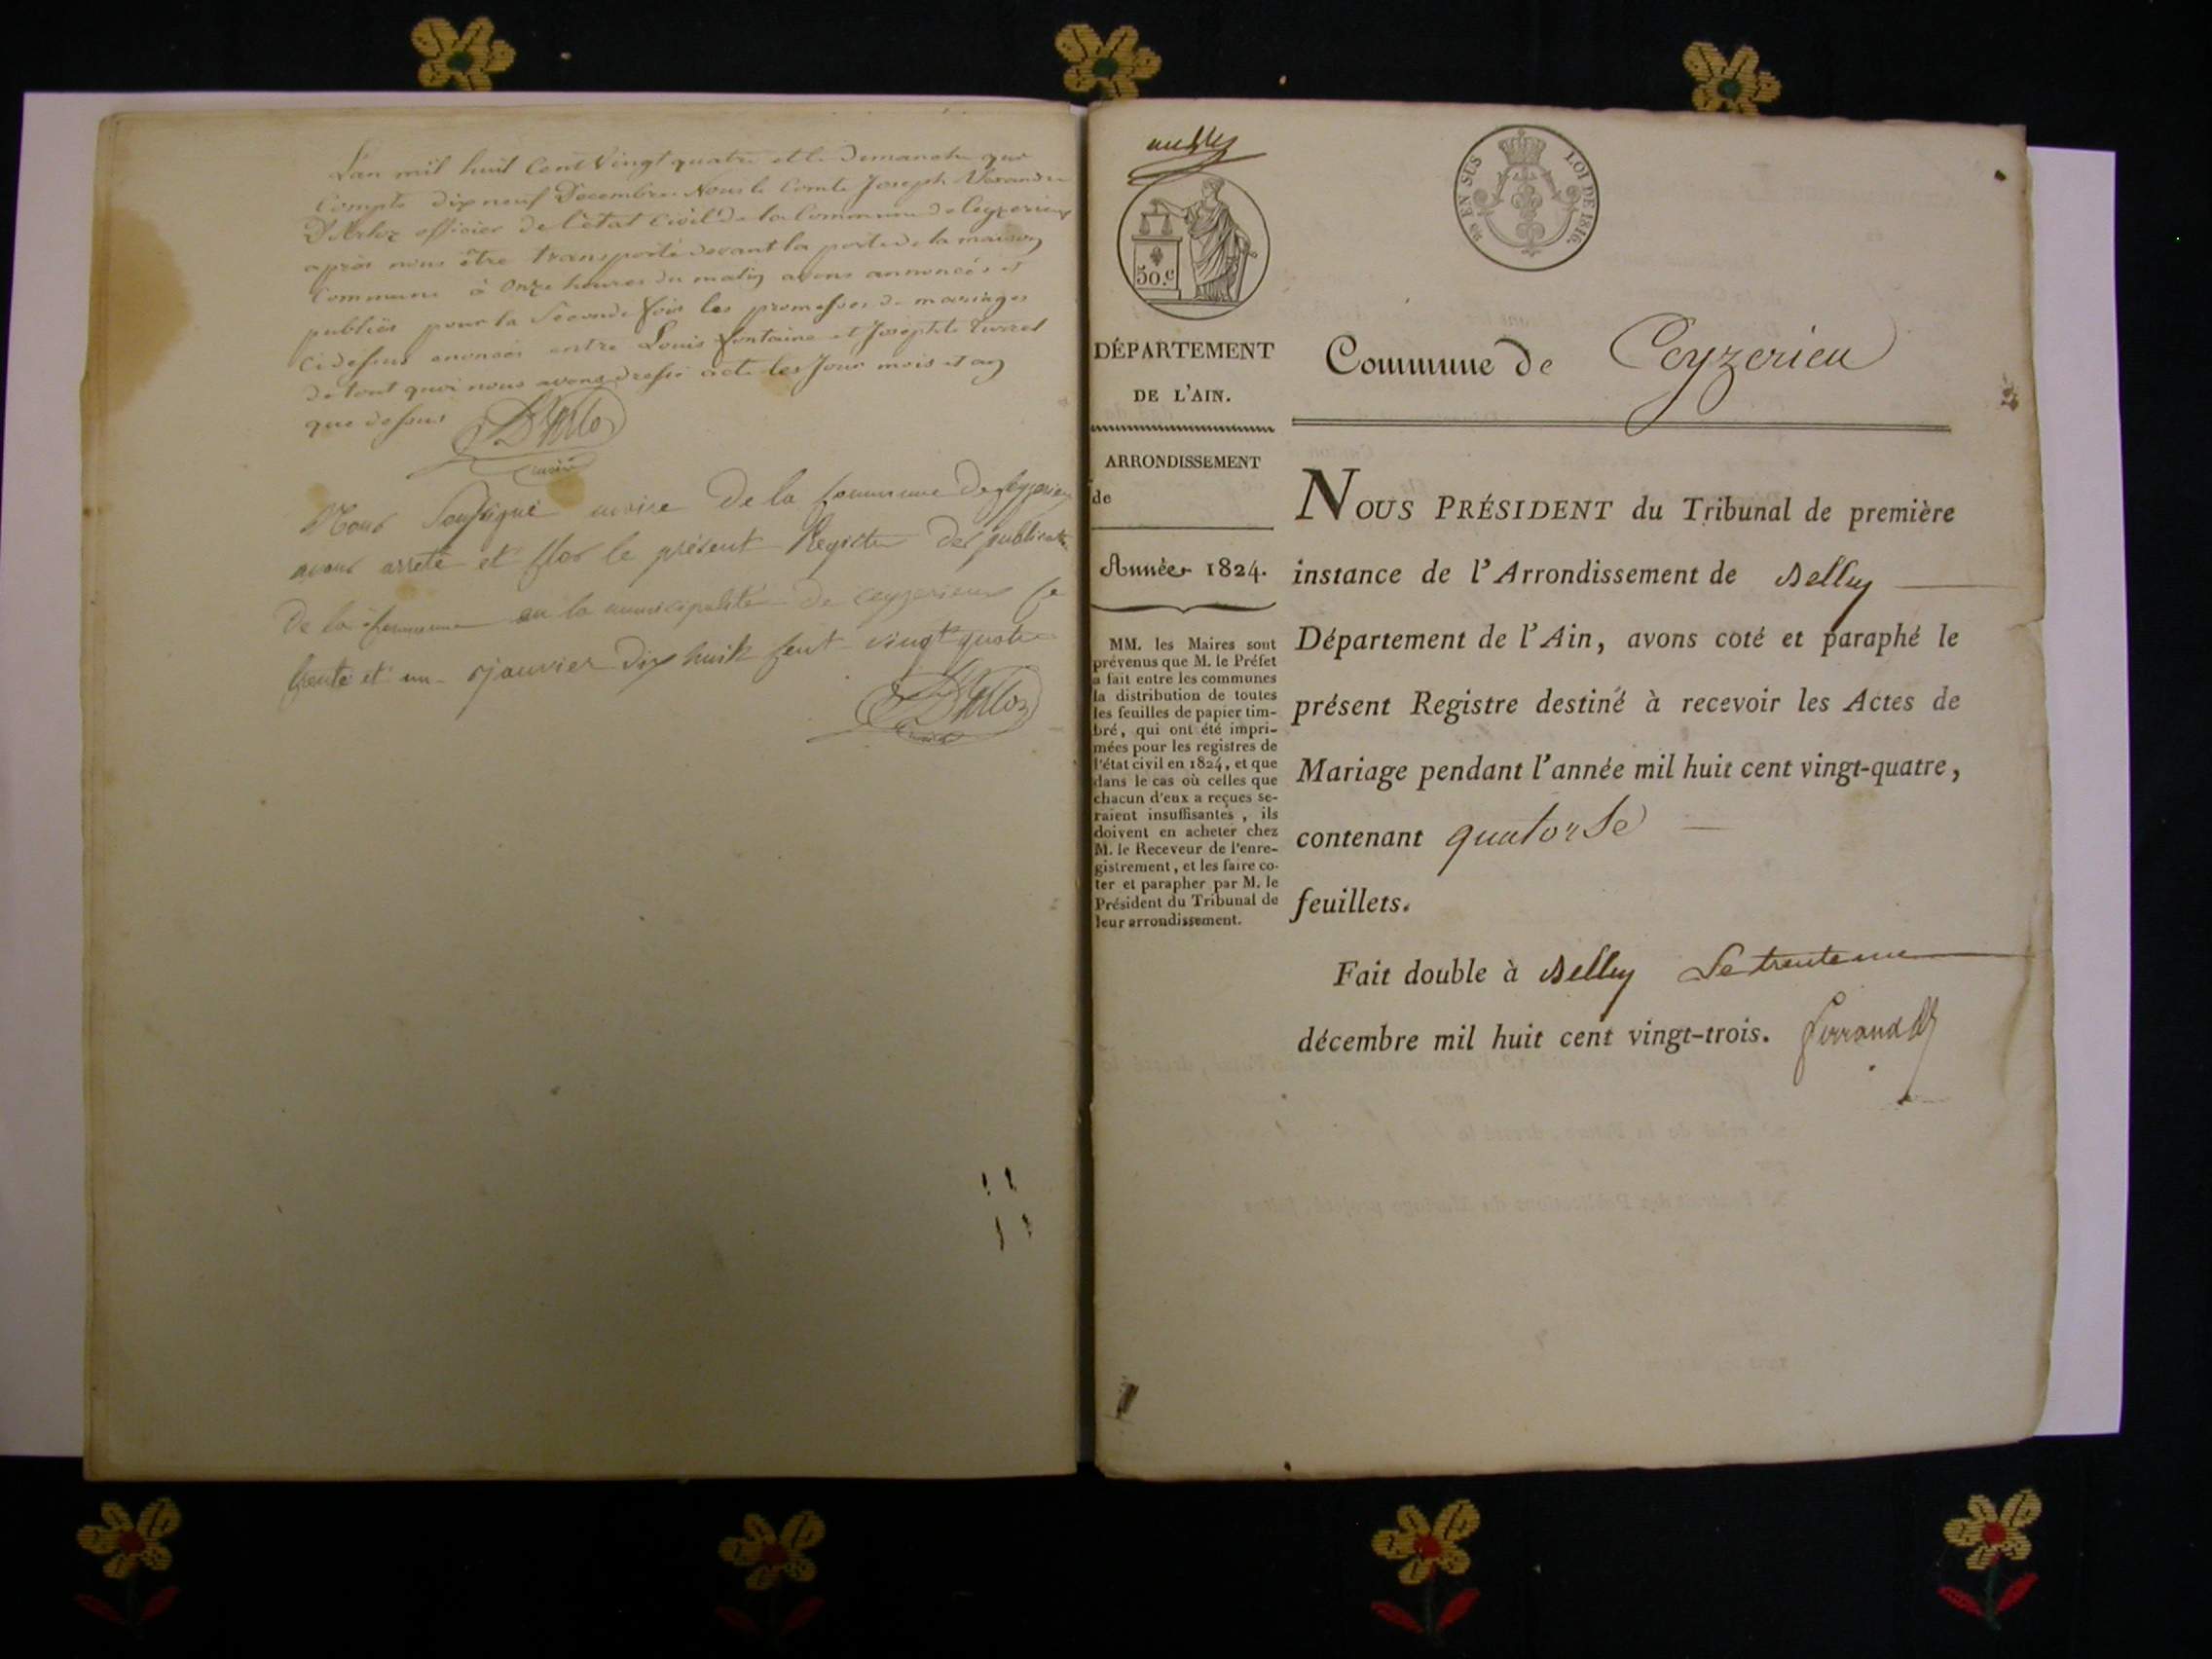 L'an mil huit Cent Vingt quatre et le Dimanche que
Compte dix neuf Décembre Nous le Comte Joseph Alexandre
D'Arloz officier de l'état Civil de la Commune de Ceyzerieux
après nous être transporté devant la porte de la maison
Commune à onze heures du matin avons annoncés et
publiés pour la Seconde fois les promesses de mariages
ci dessus enoncés entre Louis fontaine et Josephte
de tout quoi nous avons dressé acte les Jour mois et an
que dessus
D'Arloz
maire
Nous Soussigné maire De la Commune De Ceyzerieux
avons arreté et Clos le présent Registre des publications
De la Commune en la municipalité De Ceyzerieux Ce
trente et un janvier Dix huit Cent vingt quatre
D'Arloz
50.c
EN SUS
LOI DE 1816.
DÉPARTEMENT
DE L'AIN.
ARRONDISSEMENT
de
Année 1824.
MM. les Maires sont
prévenus que M. le Préfet
a fait entre les communes
la distribution de toutes
les feuilles de papier tim-
bré, qui ont été impri-
mées pour les registres de
l'état civil en 1824, et que
dans le cas où celles que
chacun d'eux a reçues se-
raient insuffisantes, ils
doivent en acheter chez
M. le Receveur de l'enre-
gistrement, et les faire co-
ter et parapher par M. le
Président du Tribunal de
leur arrondissement.
Commune de Ceyzerieu
NOUS PRÉSIDENT du Tribunal de première
instance de l'Arrondissement de Belley
Département de l'Ain, avons coté et paraphé le
présent Registre destiné à recevoir les Actes de
Mariage pendant l'année mil huit cent vingt-quatre,
contenant quatorse
feuillets.
Fait double à Belley Le trente
décembre mil huit cent vingt-trois. ferrand